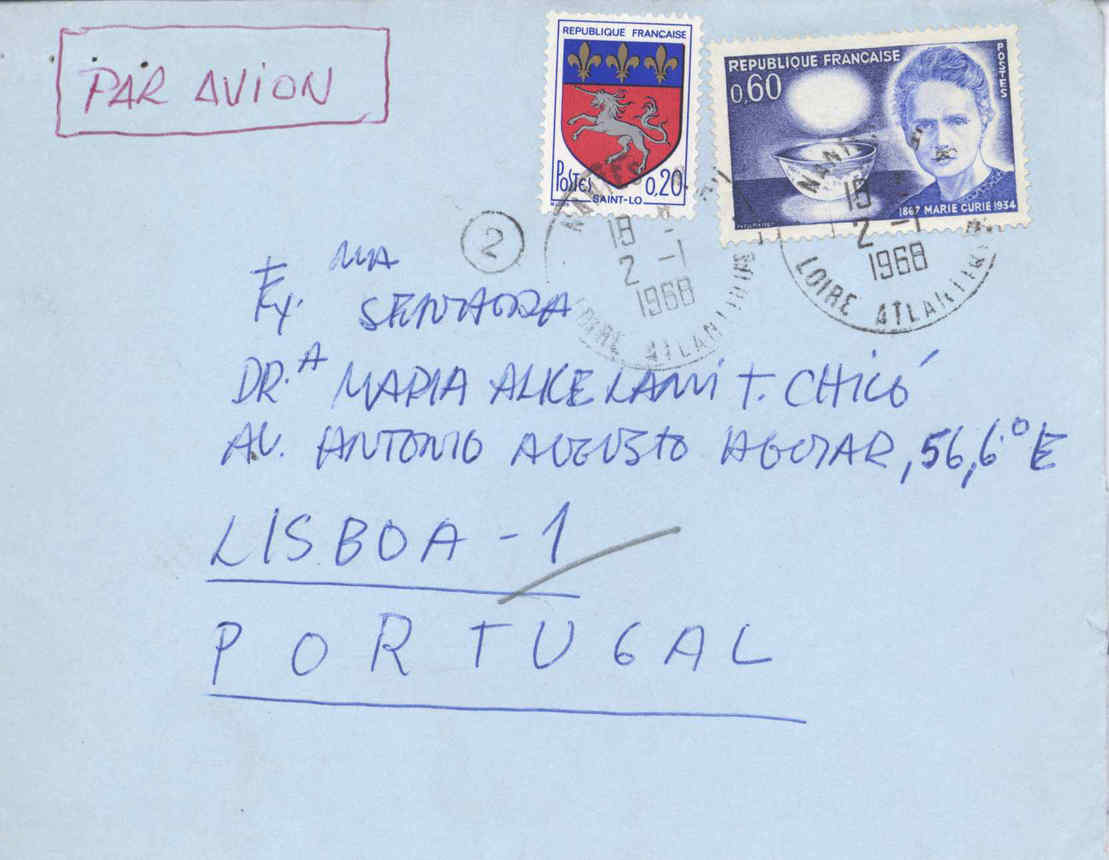 PAR AVION
REPUBLIQUE FRANÇAISE
POSTES 0,20
SAINT-LO
REPUBLIQUE FRANÇAISE
POSTES
0,60
1867 MARIE CURIE 1934
NANTES
18
2 -1
1968
LOIRE ATLANTIQUE
NANTES
18
2 -1
1968
LOIRE ATLANTIQUE
2
Ex. MA SENHORA
DR.A MARIA ALICE LAMI T. CHICÓ
AV. ANTONIO AUGUSTO AGUIAR, 56, 6º E
LISBOA - 1
PORTUGAL